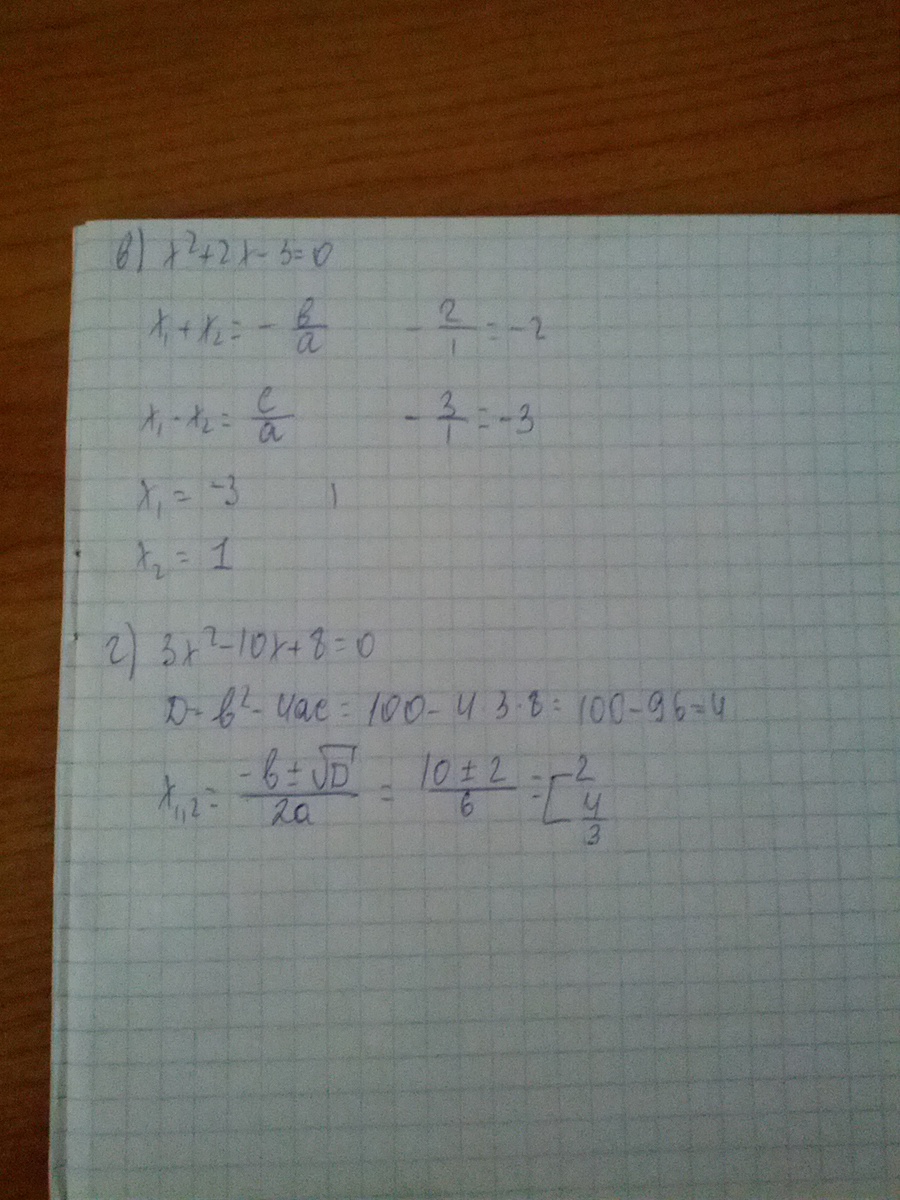 в) x²+2x-3=0
x₁+x₂=-в/a -2/1=-2
x₁-x₂=c/a -3/1=-3
x₁=-3
x₂=1
г) 3x²-10x+8=0
D=в²-4ac=100-4·3·8=100-96=4
x₁,₂=(-в±√D)/2a=(10±2)/6=[2 4/3